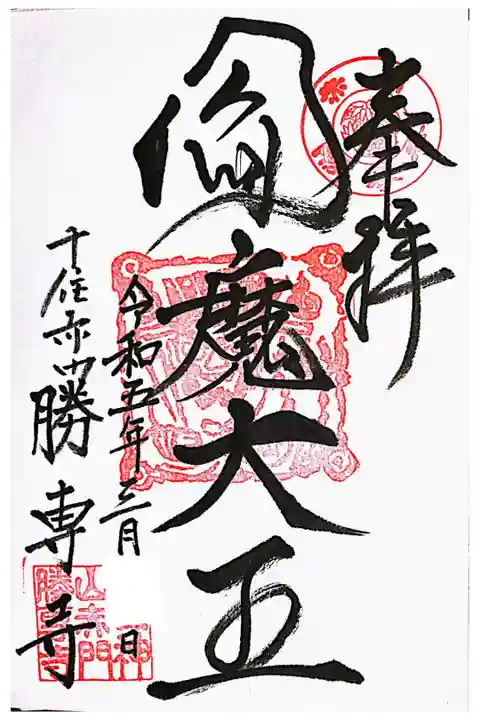 奉拝
閻魔大王
令和五年三月 日
千住赤門勝専寺